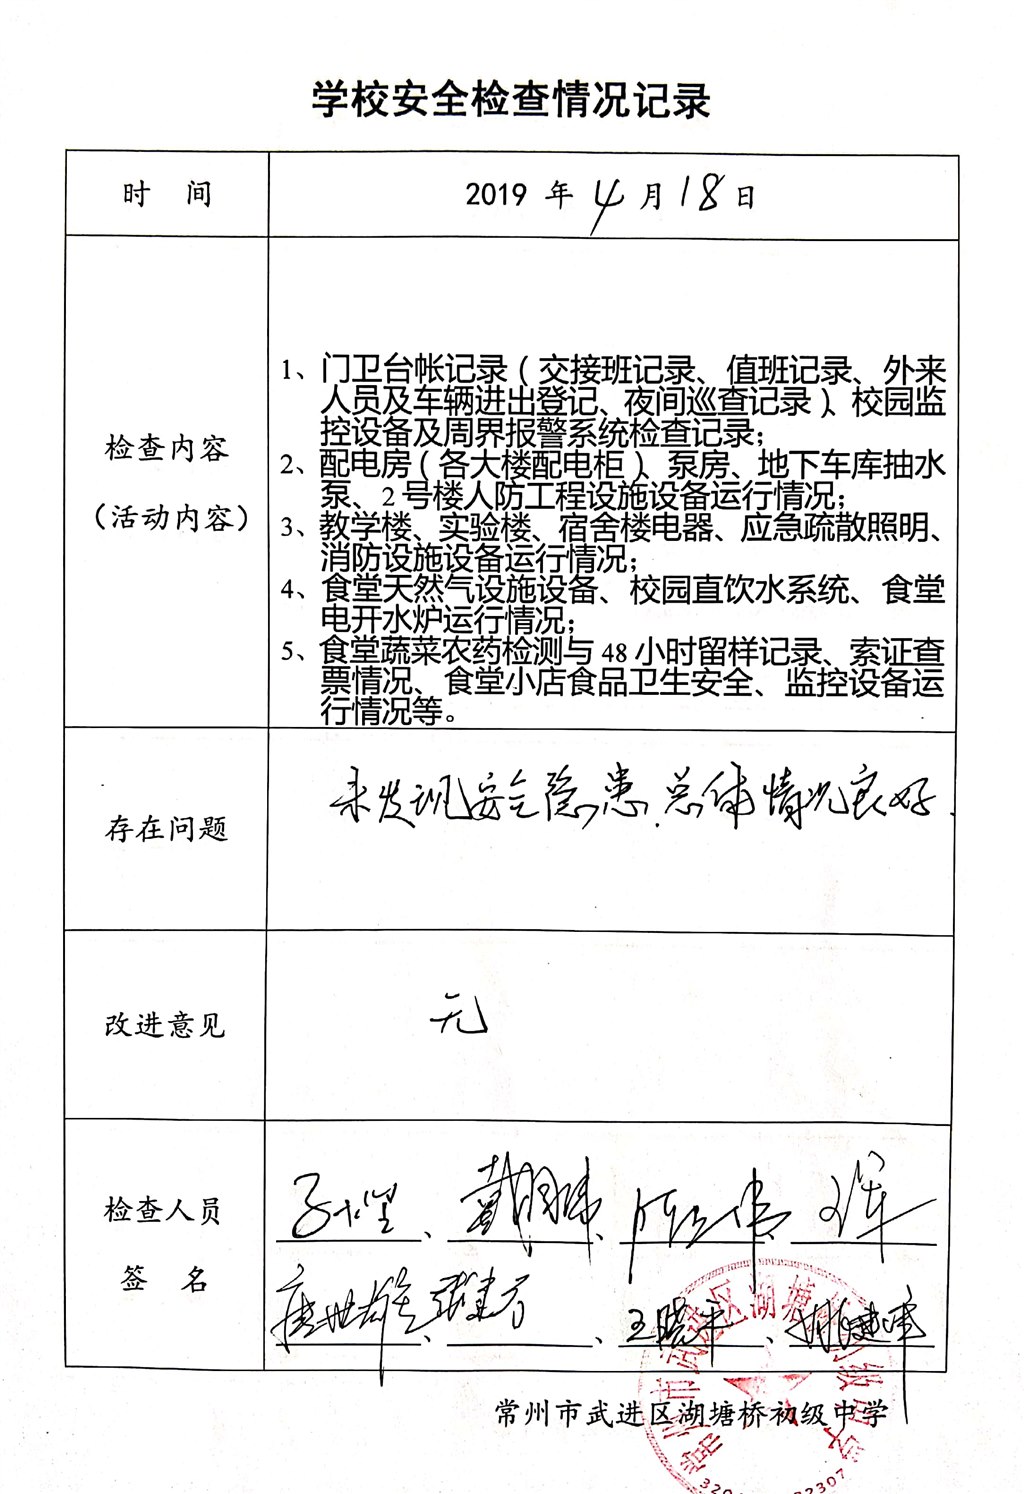 学校安全检查情况记录
时 间
2019 年 4 月 18 日
检查内容
（活动内容）
1、门卫台帐记录（交接班记录、值班记录、外来
人员及车辆进出登记、夜间巡查记录）、校园监
控设备及周界报警系统检查记录；
2、配电房（各大楼配电柜）、泵房、地下车库抽水
泵、2 号楼人防工程设施设备运行情况；
3、教学楼、实验楼、宿舍楼电器、应急疏散照明、
消防设施设备运行情况；
4、食堂天然气设施设备、校园直饮水系统、食堂
电开水炉运行情况；
5、食堂蔬菜农药检测与 48 小时留样记录、索证查
票情况、食堂小店食品卫生安全、监控设备运
行情况等。
存在问题
未发现安全隐患.总体情况良好.
改进意见
无
检查人员
签 名
王晓平
常州市武进区湖塘桥初级中学
常州市武进区湖塘桥初级中学